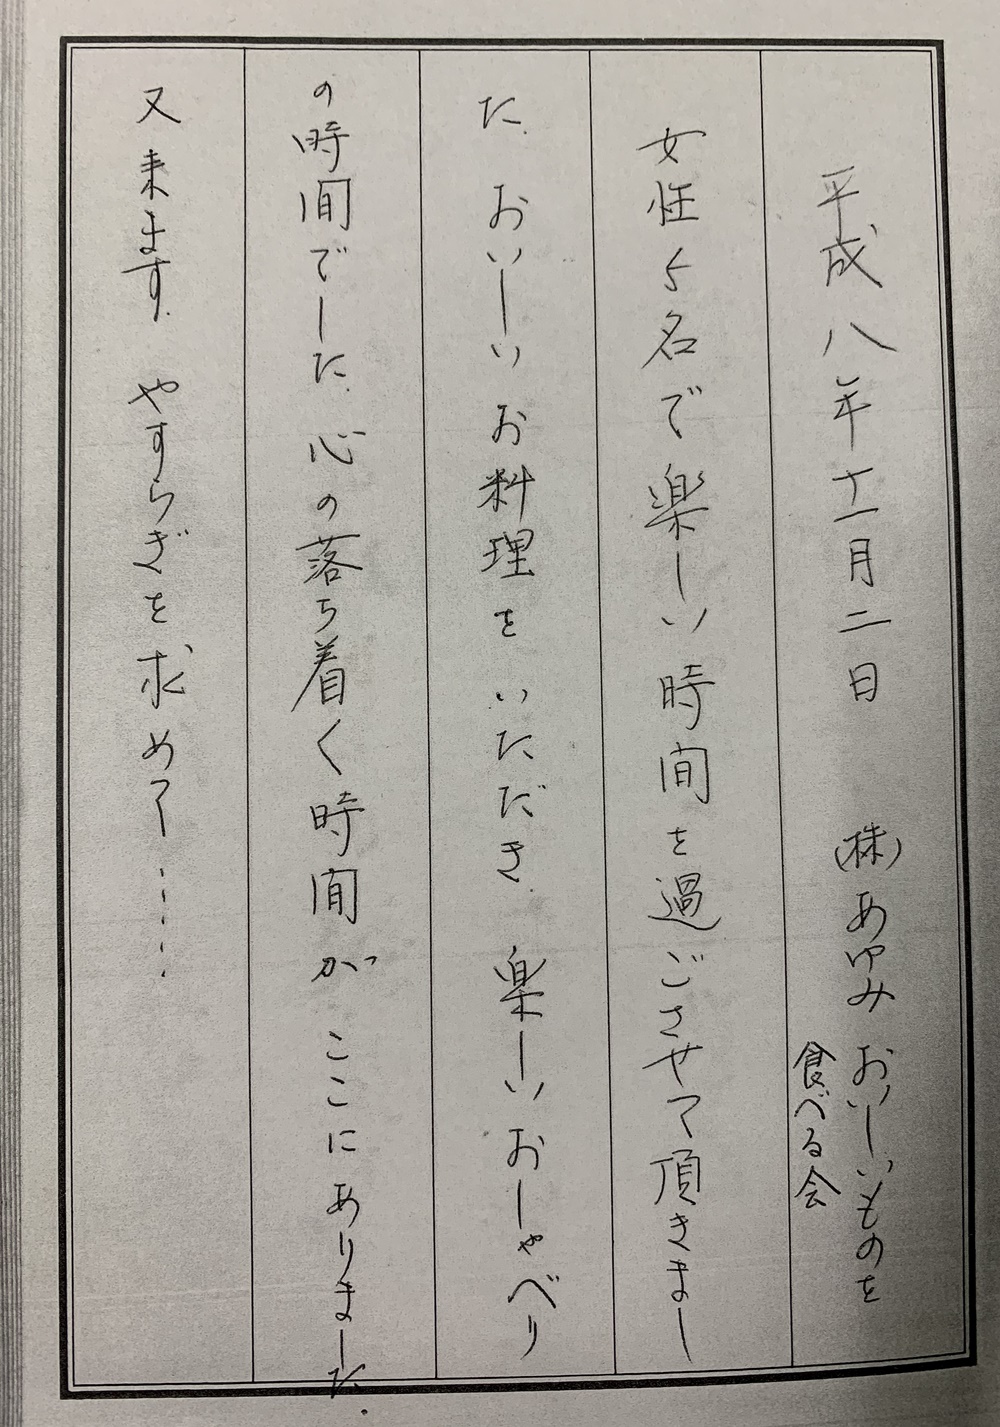 平成八年十一月二日　㈱あゆみ　おいしいものを
食べる会
女性5名で楽しい時間を過ごさせて頂きまし
た。おいしいお料理をいただき、楽しいおしゃべり
の時間でした。心の落ち着く時間がここにありました。
又来ます。やすらぎを求めて……